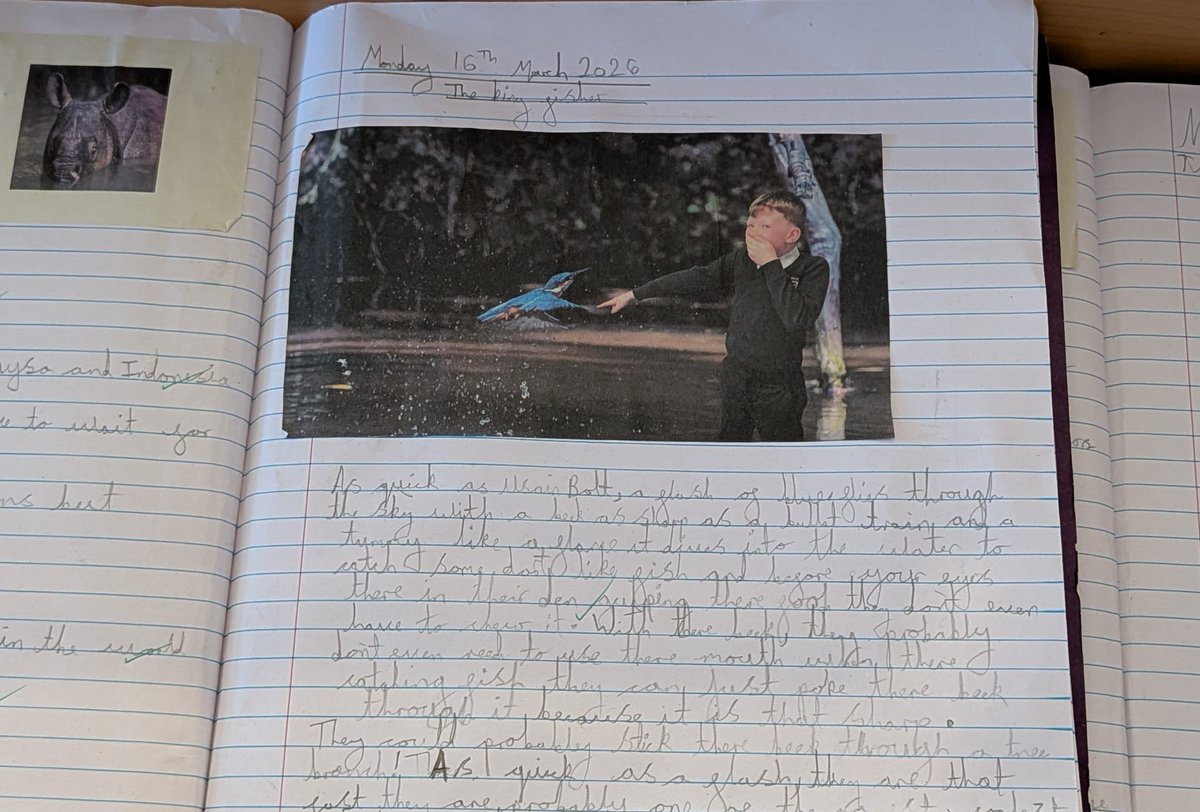 Monday 16th March 2026
The king fisher
aysa and Indonesia.
to wait for
ns hut
in the world
As quick as Usain Bolt, a flash of blue flies through
the sky with a beek as sharp as a bullet train and a
tummy like a flame it dives into the water to
catch some dart like fish and before your eyes
there in their den gulping there food they don't even
have to chew it. With there beek, they probably
don't even need to use there mouth when there
catching fish they can just poke there beek
through it because it is that sharp.
They could probably stick there beek through a tree
branch! As quick as a flash, they are that
fast they are probably one